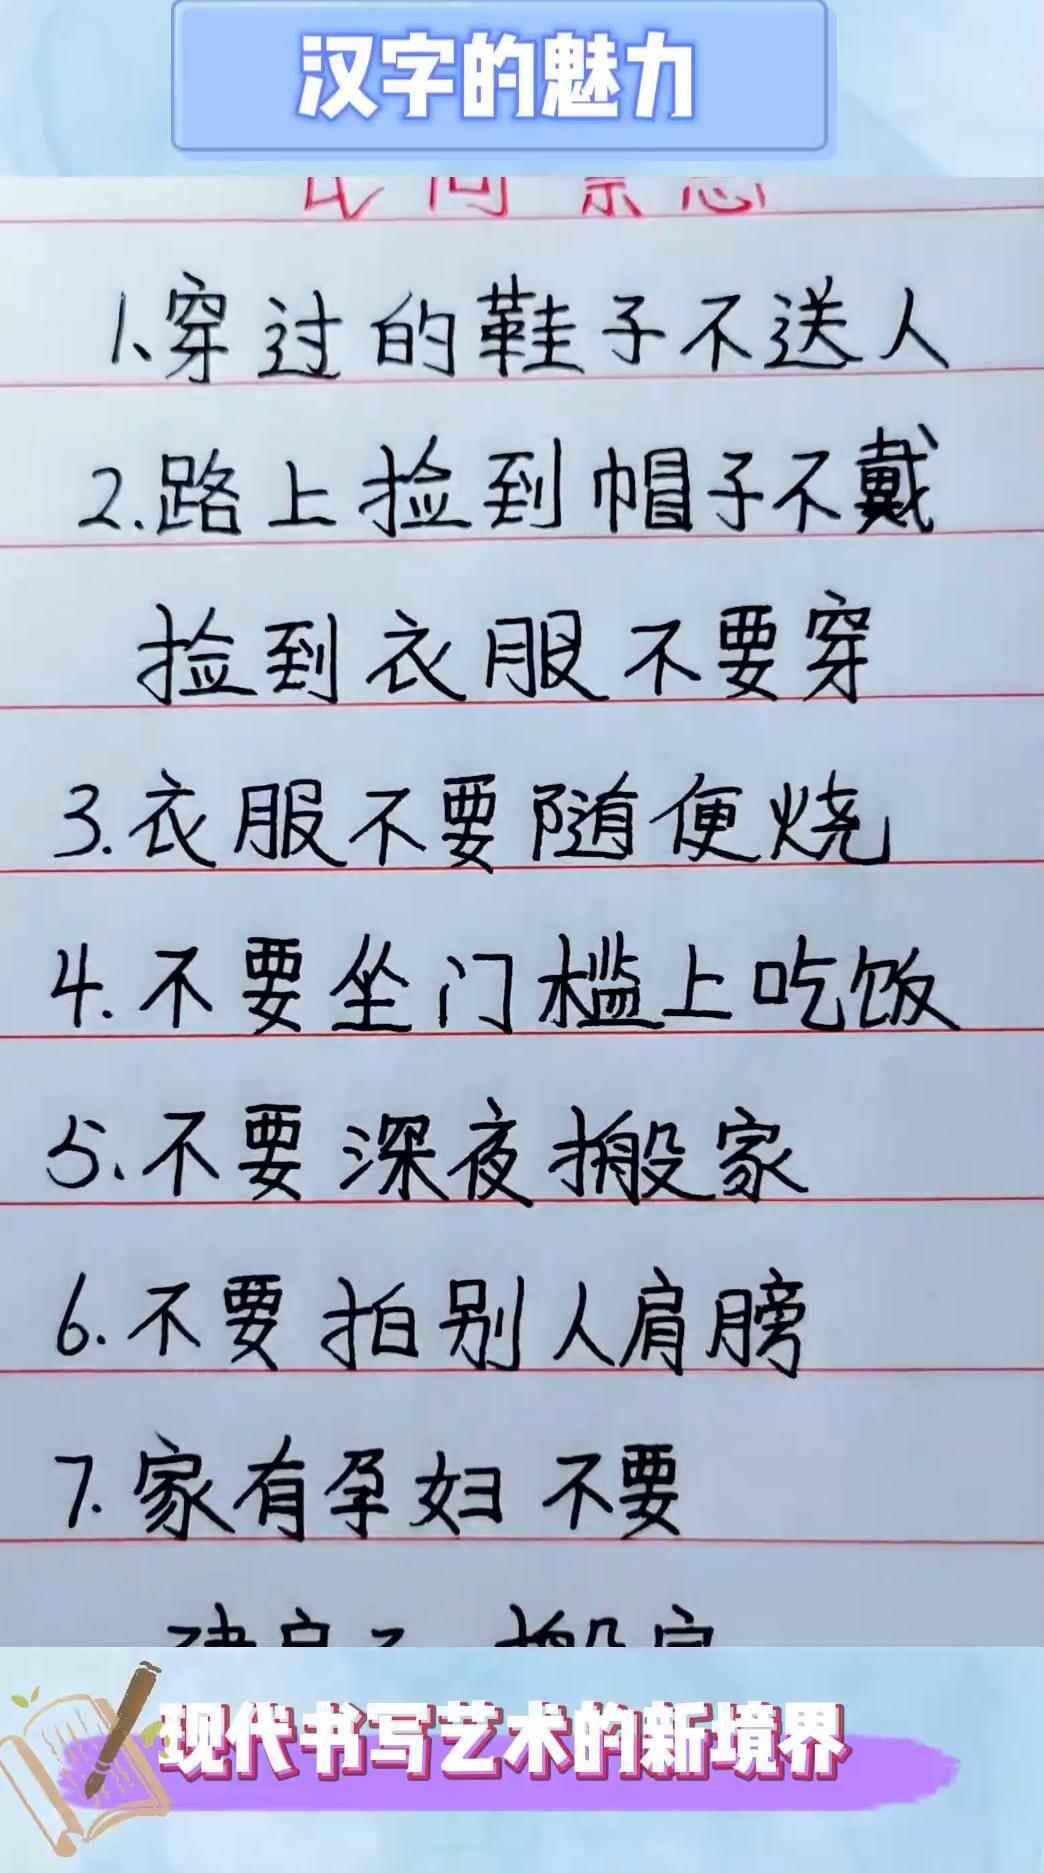 汉字的魅力
民间禁忌
1、穿过的鞋子不送人
2.路上捡到帽子不戴
捡到衣服不要穿
3.衣服不要随便烧
4.不要坐门槛上吃饭
5、不要深夜搬家
6.不要拍别人肩膀
7.家有孕妇不要
现代书写艺术的新境界